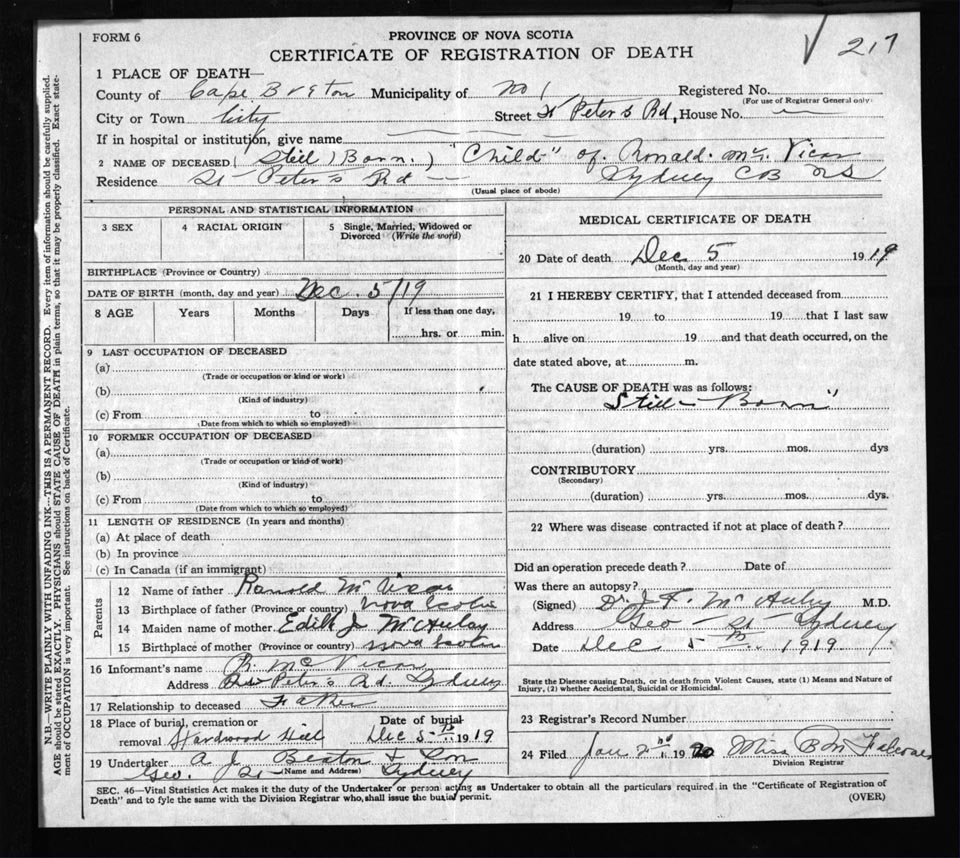 FORM 6
PROVINCE OF NOVA SCOTIA
217
CERTIFICATE OF REGISTRATION OF DEATH
1 PLACE OF DEATH—
County of Cape Breton Municipality of No 1 Registered No.
(For use of Registrar General only)
City or Town City Street St Peter's Rd, House No.
If in hospital or institution, give name
2 NAME OF DECEASED (Still) Born.) "Child" of Ronald. Mc Vicar
Residence St Peter's Rd Sydney CB NS
(Usual place of abode)
PERSONAL AND STATISTICAL INFORMATION
3 SEX 4 RACIAL ORIGIN 5 Single, Married, Widowed or
Divorced (Write the word)
BIRTHPLACE (Province or Country)
DATE OF BIRTH (month, day and year) Dec. 5/19
8 AGE Years Months Days If less than one day,
hrs. or min.
9 LAST OCCUPATION OF DECEASED
(a)
(Trade or occupation or kind or work)
(b)
(Kind of industry)
(c) From to
(Date from which to which so employed)
10 FORMER OCCUPATION OF DECEASED
(a)
(Trade or occupation or kind of work)
(b)
(Kind of industry)
(c) From to
(Date from which to which so employed)
11 LENGTH OF RESIDENCE (In years and months)
(a) At place of death
(b) In province
(c) In Canada (if an immigrant)
Parents
12 Name of father Ranold Mc Vicar
13 Birthplace of father (Province or country) Nova Scotia
14 Maiden name of mother Edith J McAulay
15 Birthplace of mother (Province or country) Nova Scotia
16 Informant's name R. McVicar
Address St Peter's Rd. Sydney
17 Relationship to deceased Father
18 Place of burial, cremation or Date of burial
removal Hardwood Hill Dec 5th 1919
19 Undertaker A. J. Beaton & Son
(Name and Address) Geo. St Sydney
MEDICAL CERTIFICATE OF DEATH
20 Date of death Dec 5 1919
(Month, day and year)
21 I HEREBY CERTIFY, that I attended deceased from
19 to 19 that I last saw
h alive on 19 and that death occurred, on the
date stated above, at m.
The CAUSE OF DEATH was as follows:
Still-Born"
(duration) yrs. mos. dys
CONTRIBUTORY
(Secondary)
(duration) yrs. mos. dys.
22 Where was disease contracted if not at place of death?
Did an operation precede death? Date of
Was there an autopsy?
(Signed) Dr J. F. McAulay M.D.
Address Geo St Sydney
Date Dec 5th 1919
State the Disease causing Death, or in death from Violent Causes, state (1) Means and Nature of
Injury, (2) whether Accidental, Suicidal or Homicidal.
23 Registrar's Record Number
24 Filed Jan 2nd 1920 Miss B M
Division Registrar
SEC. 46—Vital Statistics Act makes it the duty of the Undertaker or person acting as Undertaker to obtain all the particulars required in the "Certificate of Registration of
Death" and to fyle the same with the Division Registrar who shall issue the burial permit. (OVER)
N.B.—WRITE PLAINLY WITH UNFADING INK—THIS IS A PERMANENT RECORD. Every item of information should be carefully supplied.
AGE should be stated EXACTLY. PHYSICIANS should STATE CAUSE OF DEATH in plain terms, so that it may be properly classified. Exact state-
ment of OCCUPATION is very important. See instructions on back of Certificate.